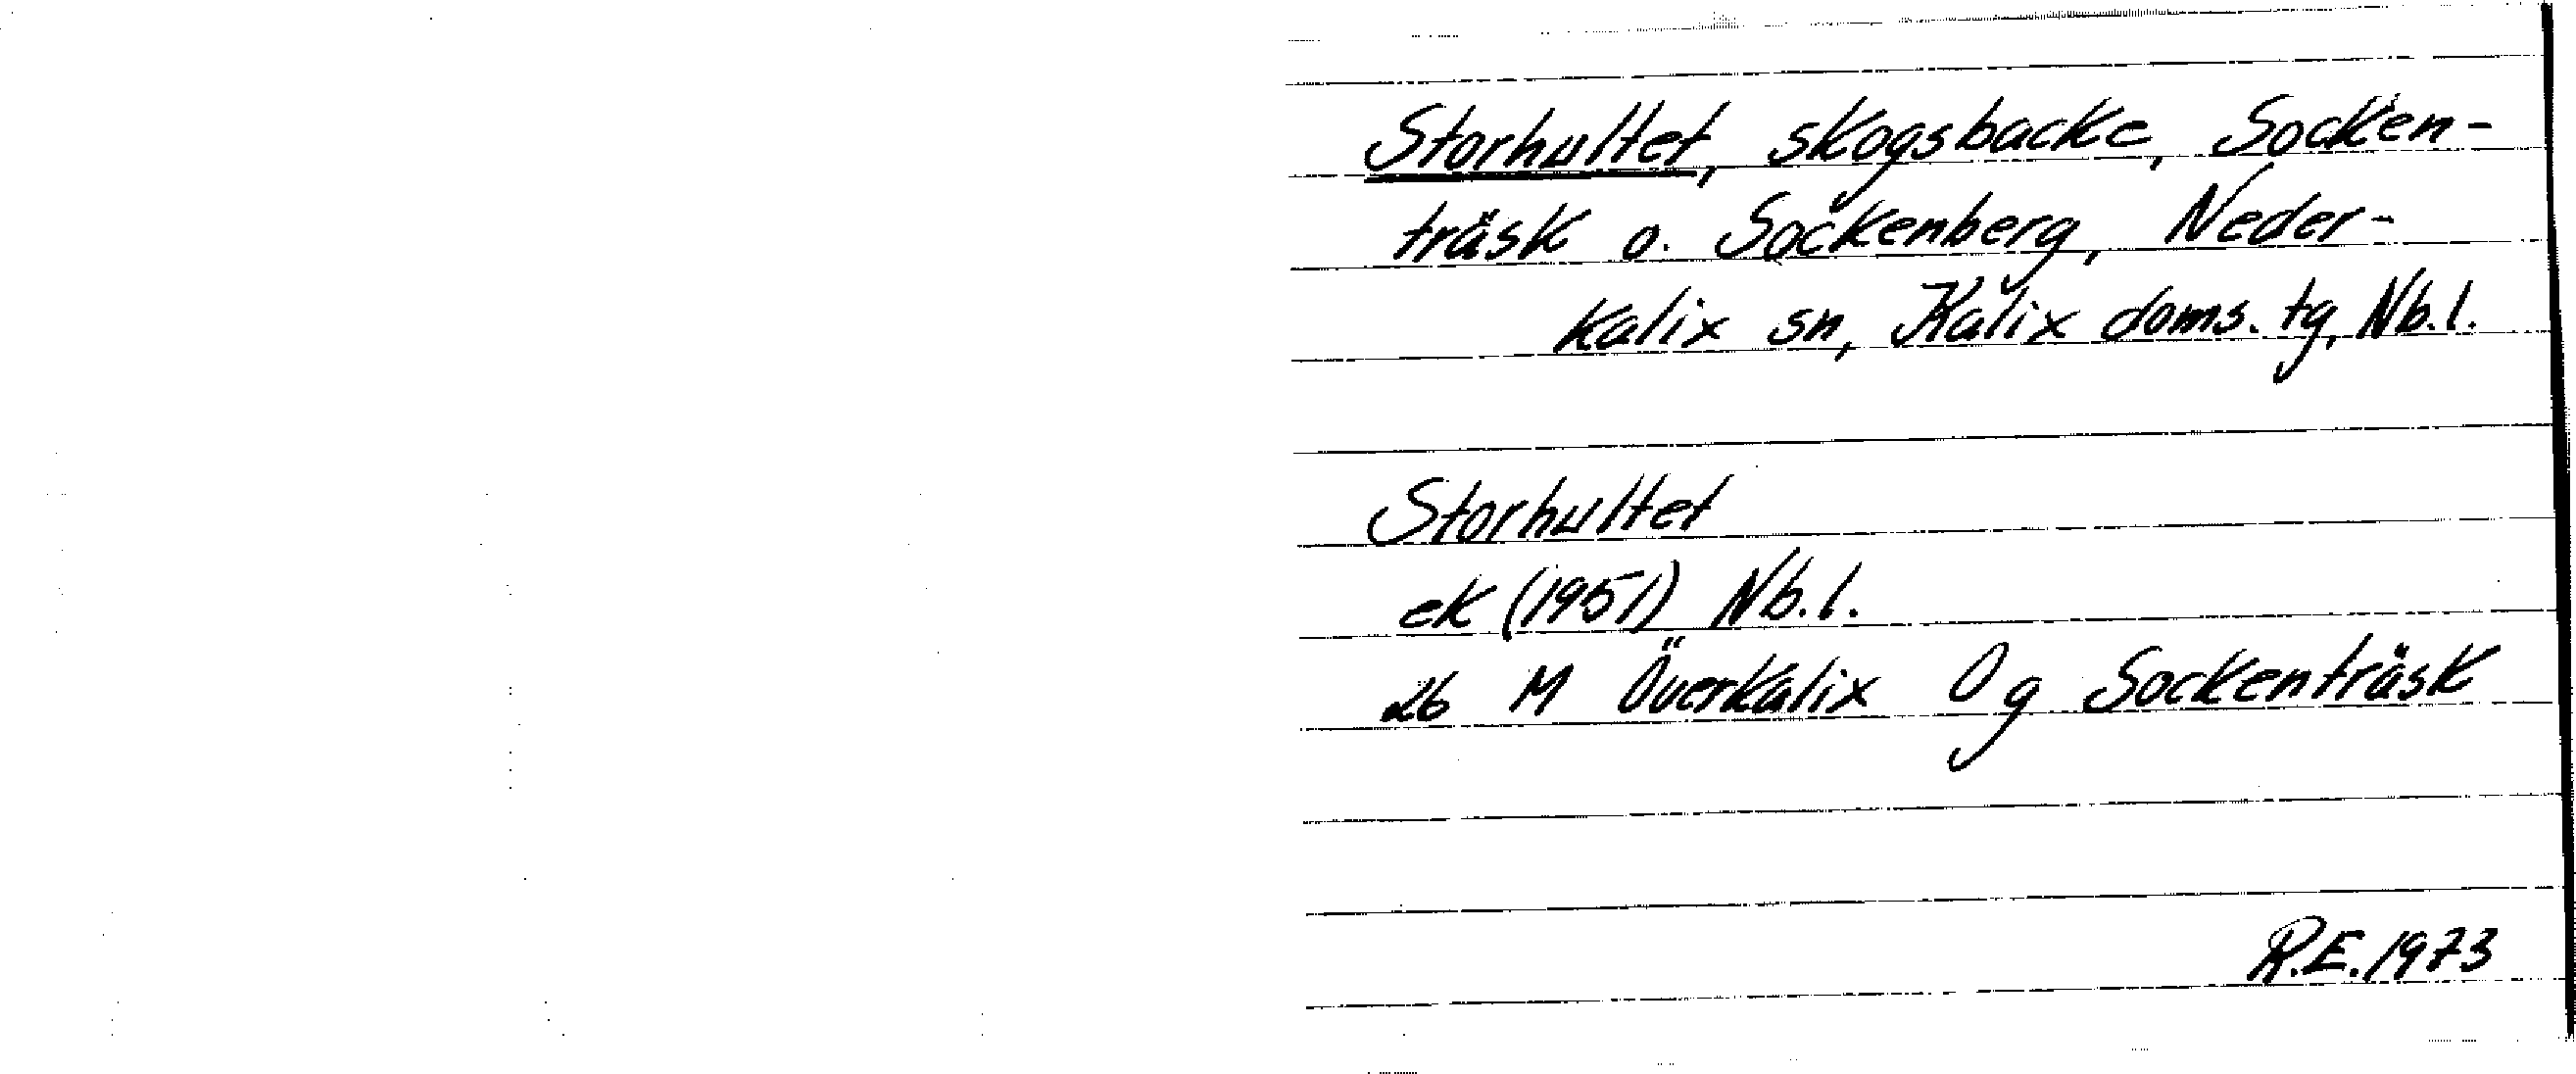 Storhultet, skogsbacke, Socken-
träsk o. Sockenberg, Neder-
kalix sn, Kalix doms. tg, Nb.l.
Storhultet
ek (1951) Nb.l.
26 M Överkalix 0 g Sockenträsk
R.E. 1973